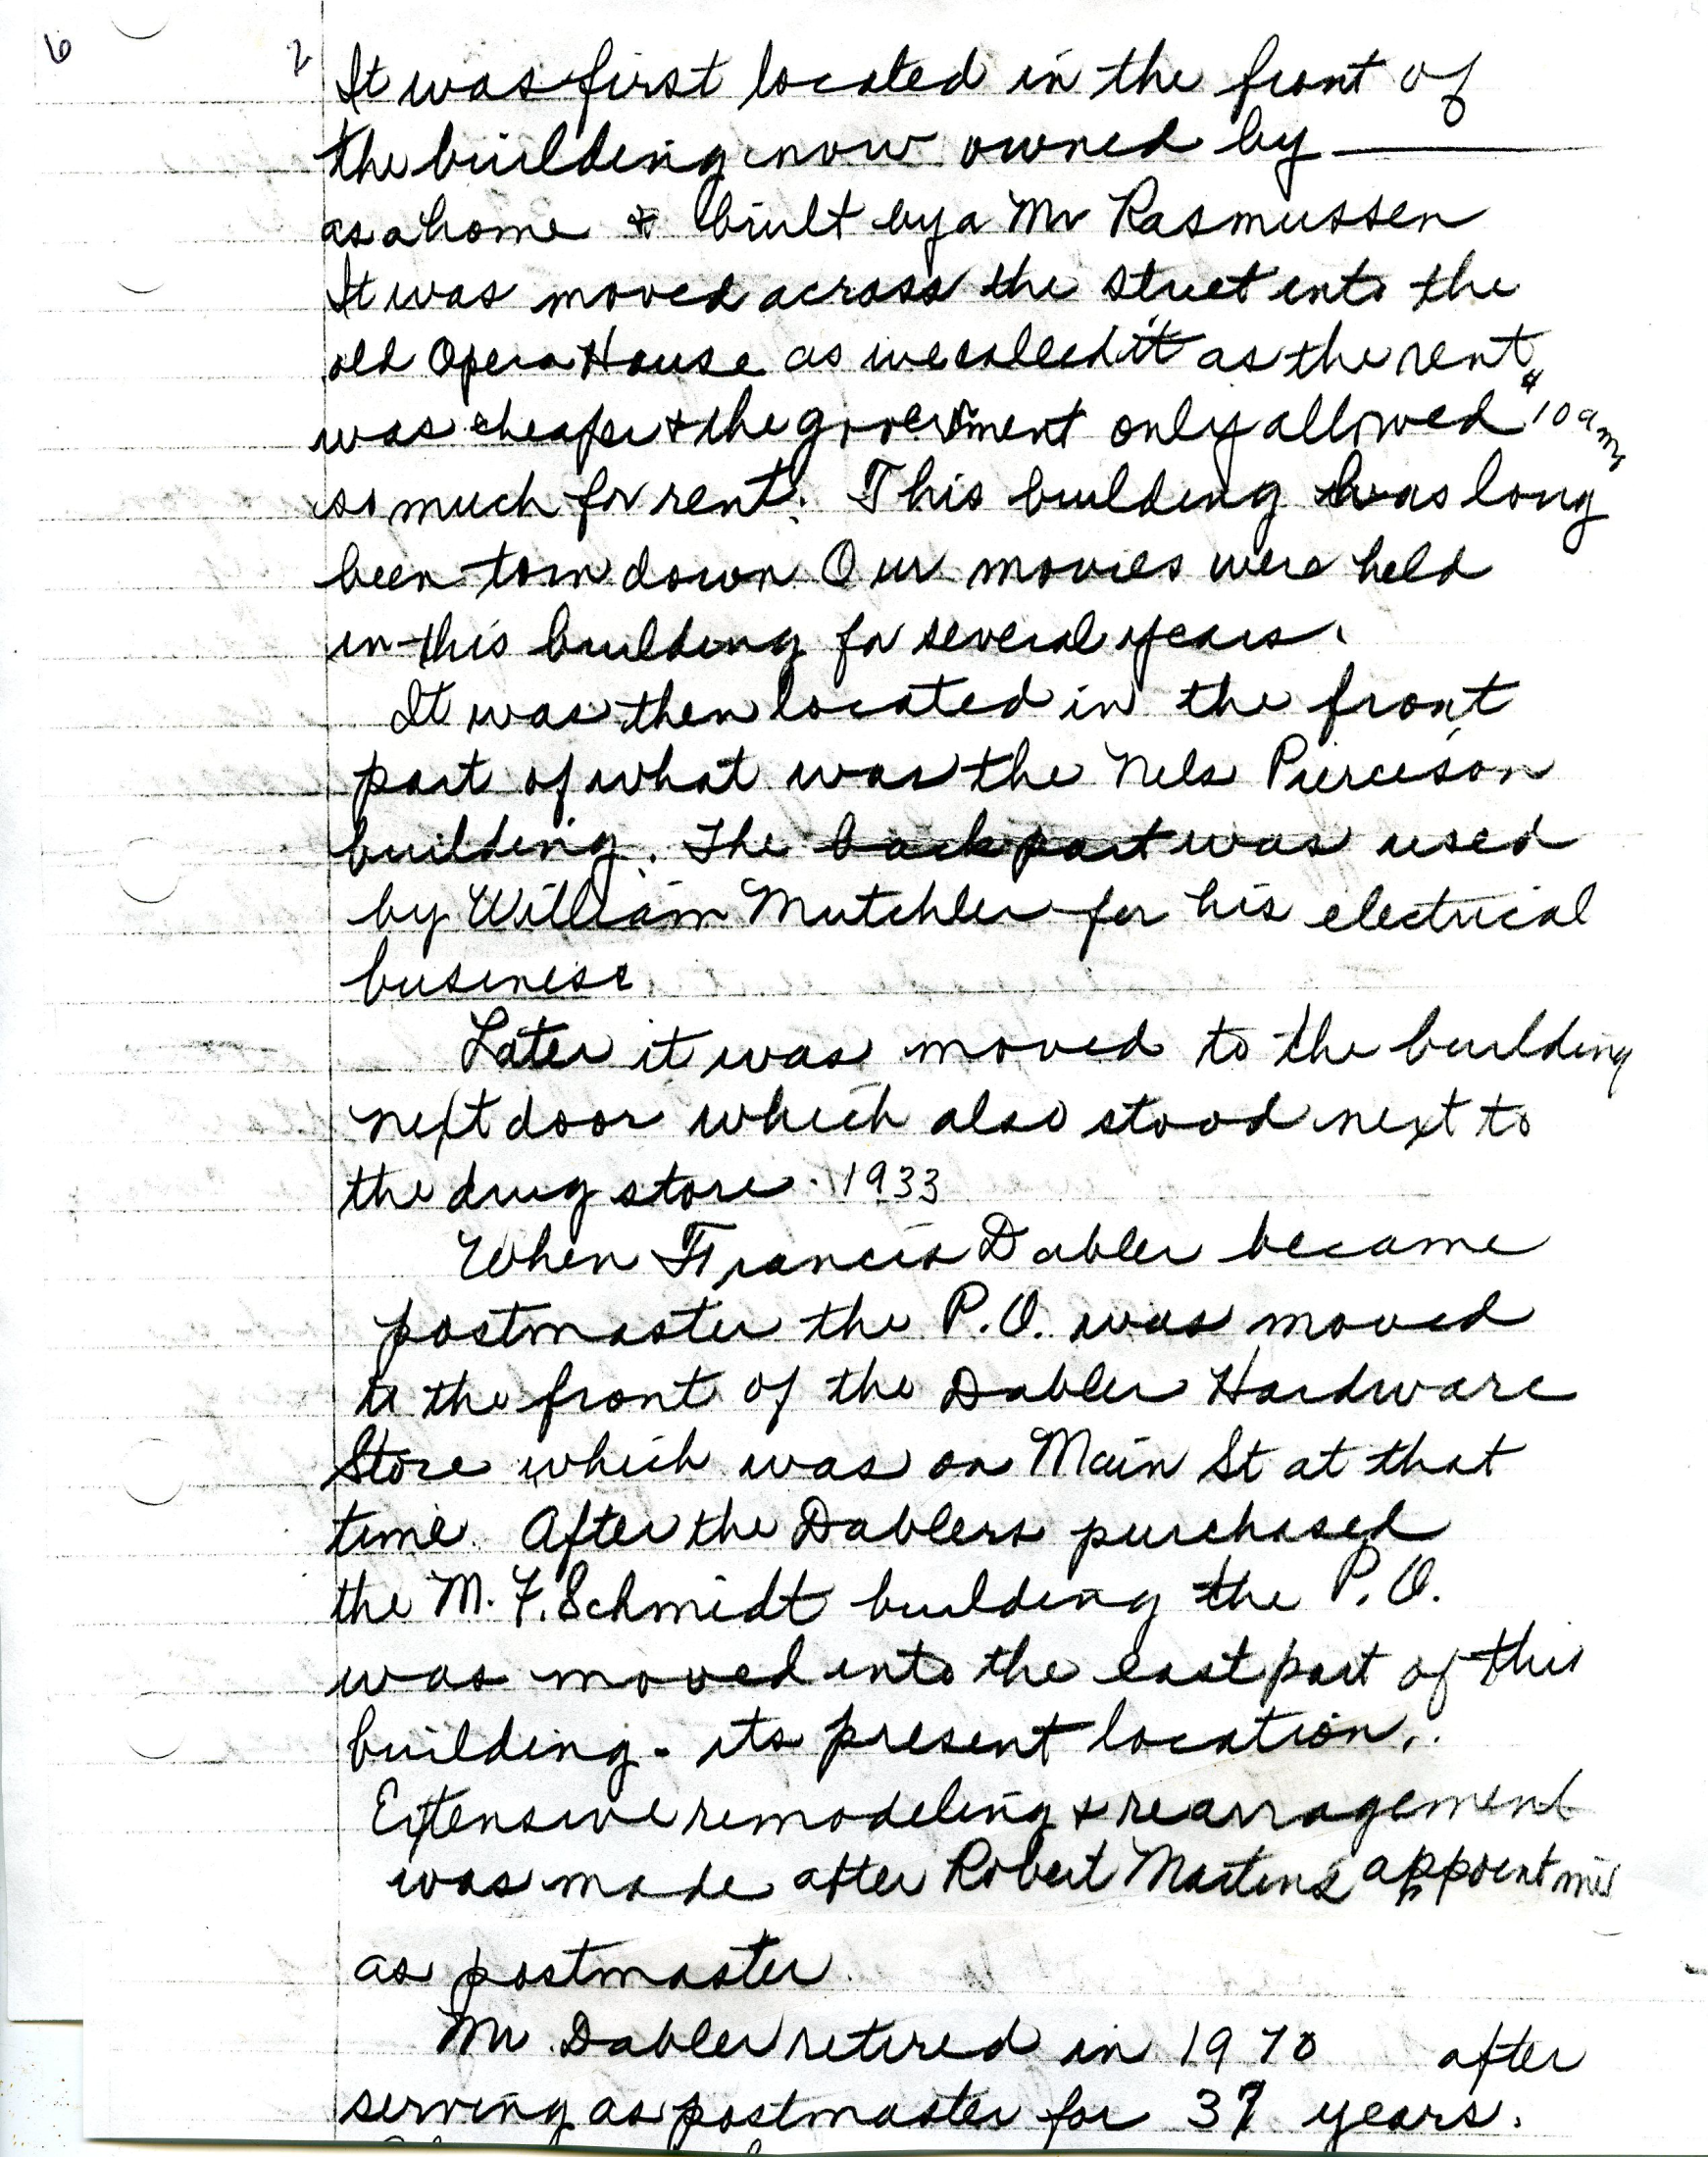 6
2
It was first located in the front of
the building now owned by ———
as a home & built by a Mr Rasmussen
It was moved across the street into the
old Opera House as we called it as the rent
was cheaper & the government only allowed
10 am
so much for rent. This building has long
been torn down. Our movies were held
in this building for several years.
It was then located in the front
part of what was the Nels Pierceson
building. The back part was used
by William Mutchler for his electrical
business.
Later it was moved to the building
next door which also stood next to
the drug store. 1933
When Francis Dabler became
postmaster the P.O. was moved
to the front of the Dabler Hardware
Store which was on Main St at that
time. After the Dablers purchased
the M. F. Schmidt building the P.O.
was moved into the east part of this
building - its present location.
Extensive remodeling & rearragement
was made after Robert Martens appointme
as postmaster.
Mr Dabler retired in 1970 after
serving as postmaster for 37 years.